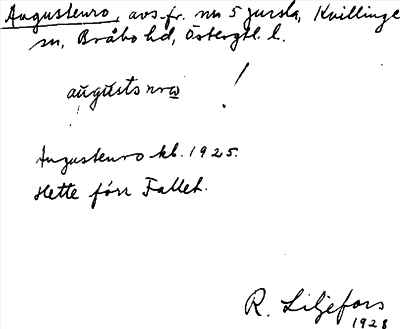 Augustenro, avs. fr. nr 5 Jursla, Kvillinge
sn, Bråbo hd, Östergtl. l.
augustsnrω !
Augustenro kb. 1925.
Hette förr Fallet.
R. Liljefors
1928